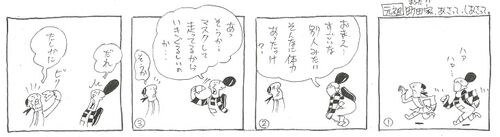 元祖 町田家、あさって、しあさて。
①
ハァ
ハァ…
②
おまえー
すごいな
別人みたい
そんなに体力
あったっけ
?
③
あっ
そうか…
マスクして
走ってるから
いきぐるしいの
か…
そうか
だれ
たしかに
ピッ